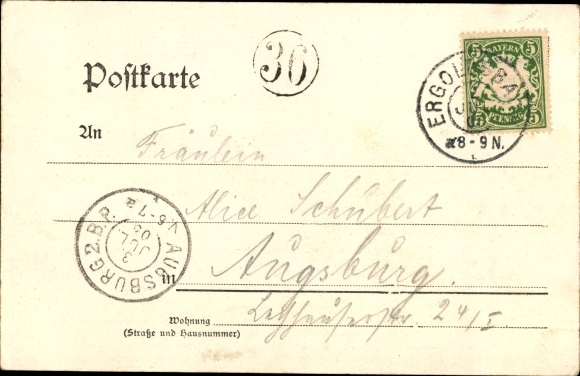 Postkarte
36
BAYERN
5 5
5 PFENNIG 5
ERGOL BA
8-9 N.
An
Fräulein
Alice Schubert
AUGSBURG 2. B.P.
3 JUL 05
V.6-7
in Augsburg.
Wohnung 24/I
(Straße und Hausnummer)